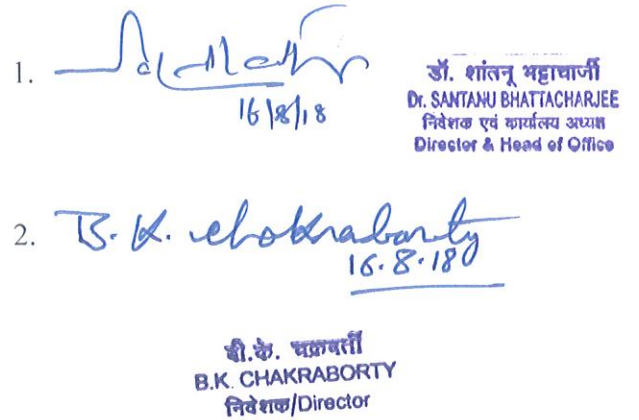 1.
16/8/18
डॉ. शांतनू भट्टाचार्जी
Dr. SANTANU BHATTACHARJEE
निदेशक एवं कार्यालय अध्यक्ष
Director & Head of Office
2. B. K. Chakraborty
16.8.18
बी.के. चक्रवर्ती
B.K. CHAKRABORTY
निदेशक/Director